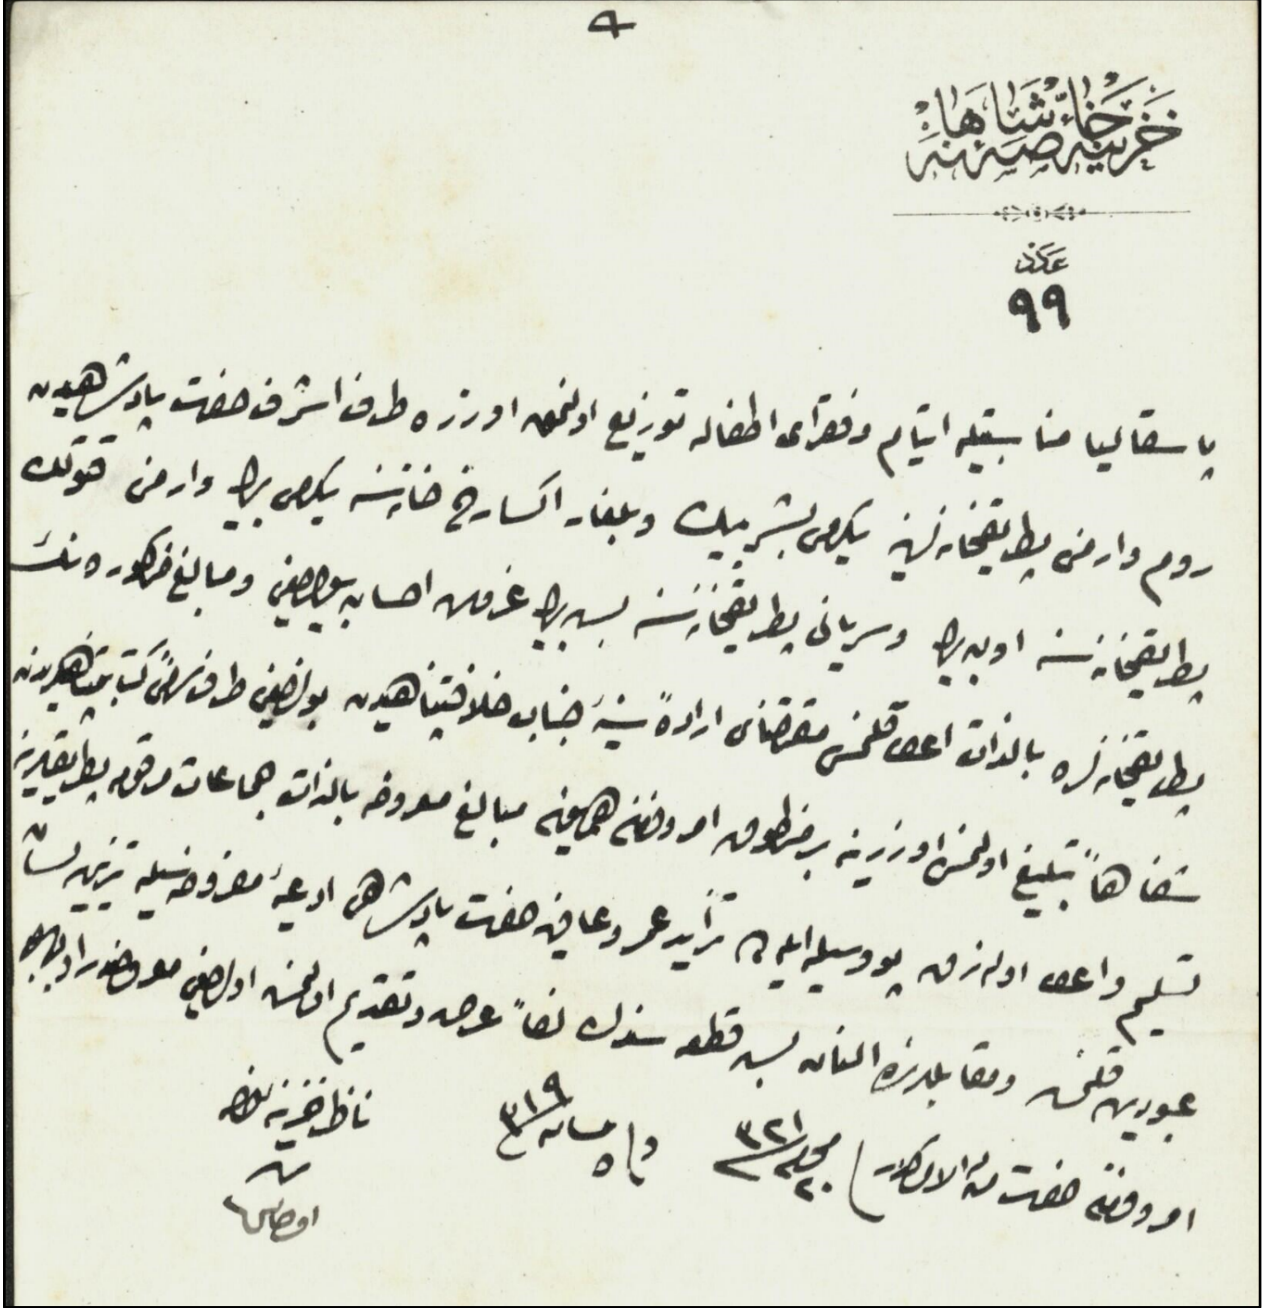 خزينهٔ خاصهٔ شاهانه
عدد
٩٩
پاسقاليا مناسبتيله ايتام وفقراى اطفاله توزيع اولنمق اوزره طرف اشرف حضرت پادشاهيدن
روم وارمنى پطريقخانه لرينه يكرمى بشر بيك وبلغار اكسارخخانه سنه يكرمى بيك وارمنى قتوليك
پطريقخانه سنه اون بيك وسريانى پطريقخانه سنه بش بيك غروش احسان بيورلديغى ومبالغ مذكوره نك
پطريقخانه لره بالذات اعطا قلنمسى مقتضاى ارادهٔ سنيهٔ جناب خلافتپناهيدن بولنديغى طرف سركتابتپناهيلرندن
شفاهاً تبليغ اولنمسى اوزرينه برمنطوق امر وفرمان همايون مبالغ معروضه بالذات جماعات مرقومه پطريقلرينه
تسليم واعطا اولنه رق بو وسيله ايله ده تزايد عمر وعافيت حضرت پادشاهى ادعيهٔ مفروضه سيله تزيين لسان
عبوديت قلنمش ومقابللرنده النان بش قطعه سندلر لفاً عرض وتقديم اولنمش اولديغى معروضدر اولبابده
امر وفرمان حضرت من له الامركدر
محرم ٣٢١
٢٠
و
٥ نيسان ٣١٩
ناظر خزينهٔ خاصه
اوهانس